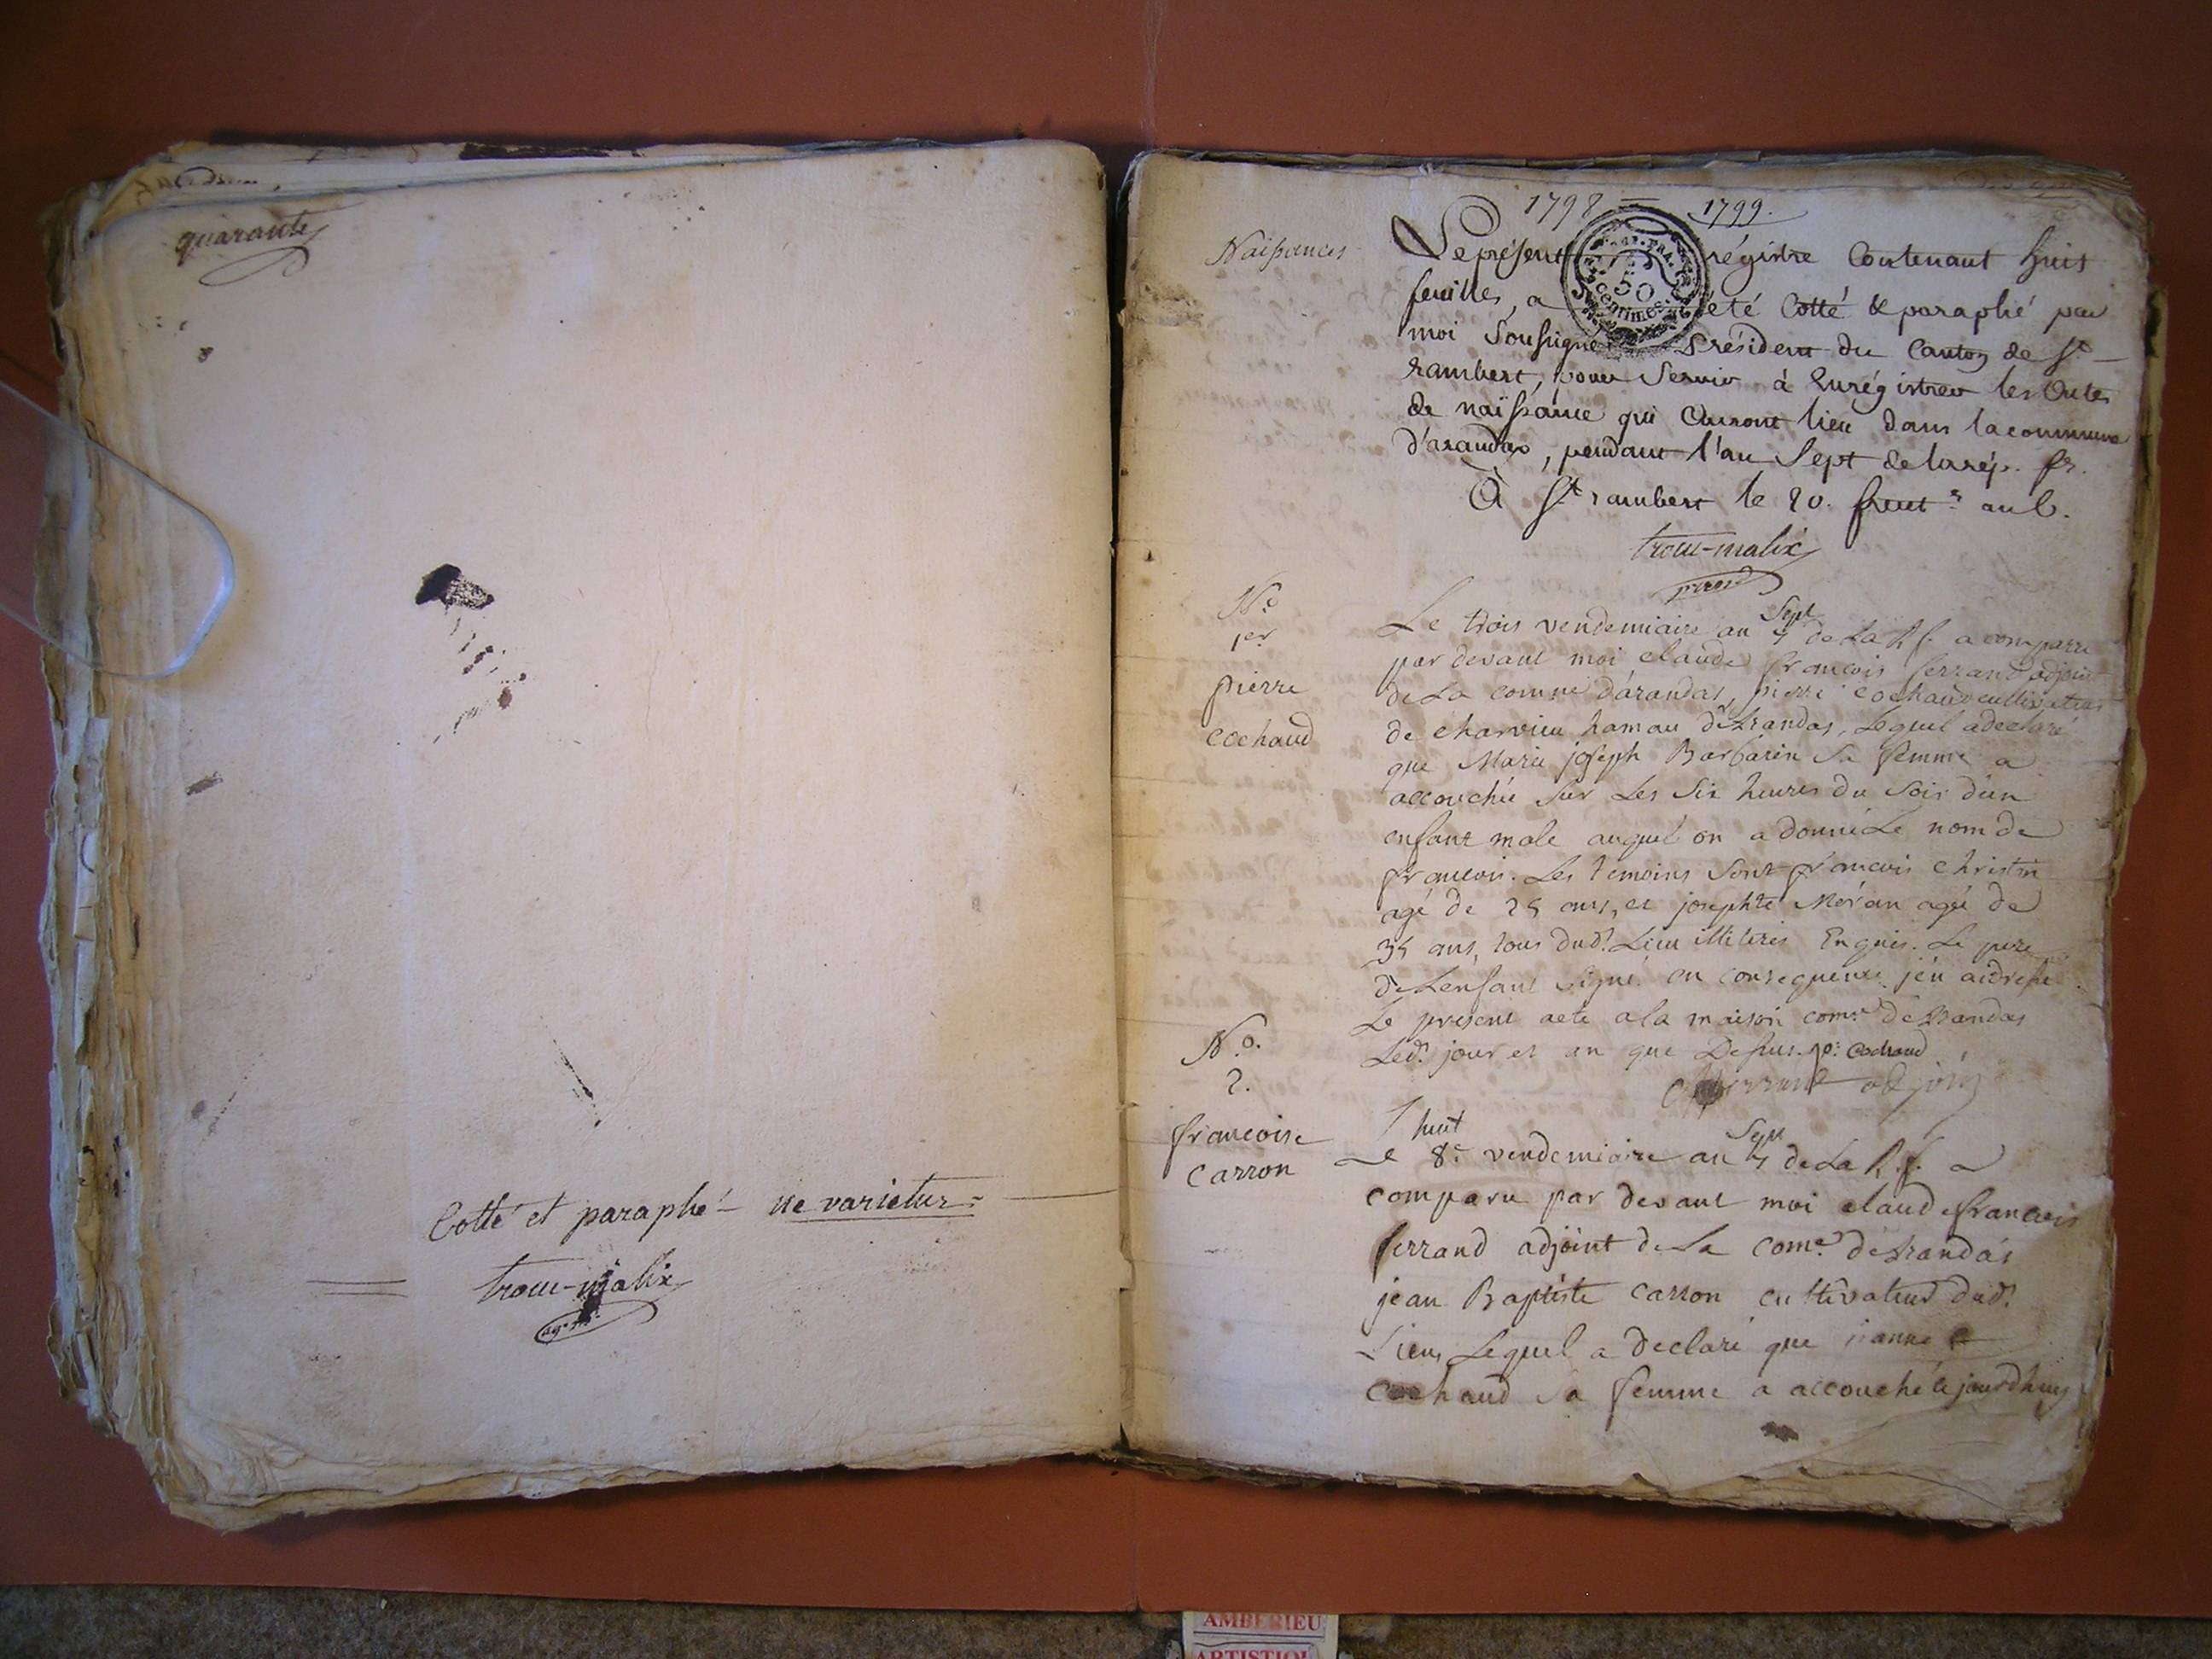 quarante
Cotté et paraphé ne varietur
trocu-malix
1798 = 1799.
Naissances
Le présent régistre Contenant huit
feuilles, a été Cotté & paraphé par
50
centimes
moi Soussigné Président du Canton de St
rambert, pour Servir à Enrégistrer les Actes
de naissance qui Auront lieu dans la commune
d'arandas, pendant l'an Sept de la rép. fr.
A St rambert le 20. fruct.r an 6.
trocu-malix
No.
1er
pierre
cochaud
Le trois vendemiaire an Sept 7 de La R f. a comparu
par devant moi claude françois ferrand adjoint
de La comne d'arandas, pierre cochaud cultivateur
de charvieu hamau d'Arandas, Lequel a declaré
que Marie joseph Barbarin Sa femme a
accouchée Sur Les Six heures du Soir d'un
enfant male auquel on a donné Le nom de
francois. Les temoins Sont francois christin
agé de 25 ans, et josephte Méran agée de
35 ans, tous dud. Lieu illiterés Enquis. Le pere
de Lenfant Signé. en consequence j'en ai dressé
Le present acte a la maison come d'Arandas
Led. jour et an que Dessus. p. cochaud
ferrand adjoint
No.
2.
francoise
carron
Le huit 8e vendemiaire an Sept 7 de La R. f. a
comparu par devant moi claude francois
ferrand adjoint de La come d'Arandas
jean Baptiste carron cultivateur dud.
Lieu, Lequel a declaré que jeanne
cochaud Sa femme a accouché cejourdhuy
AMBERIEU